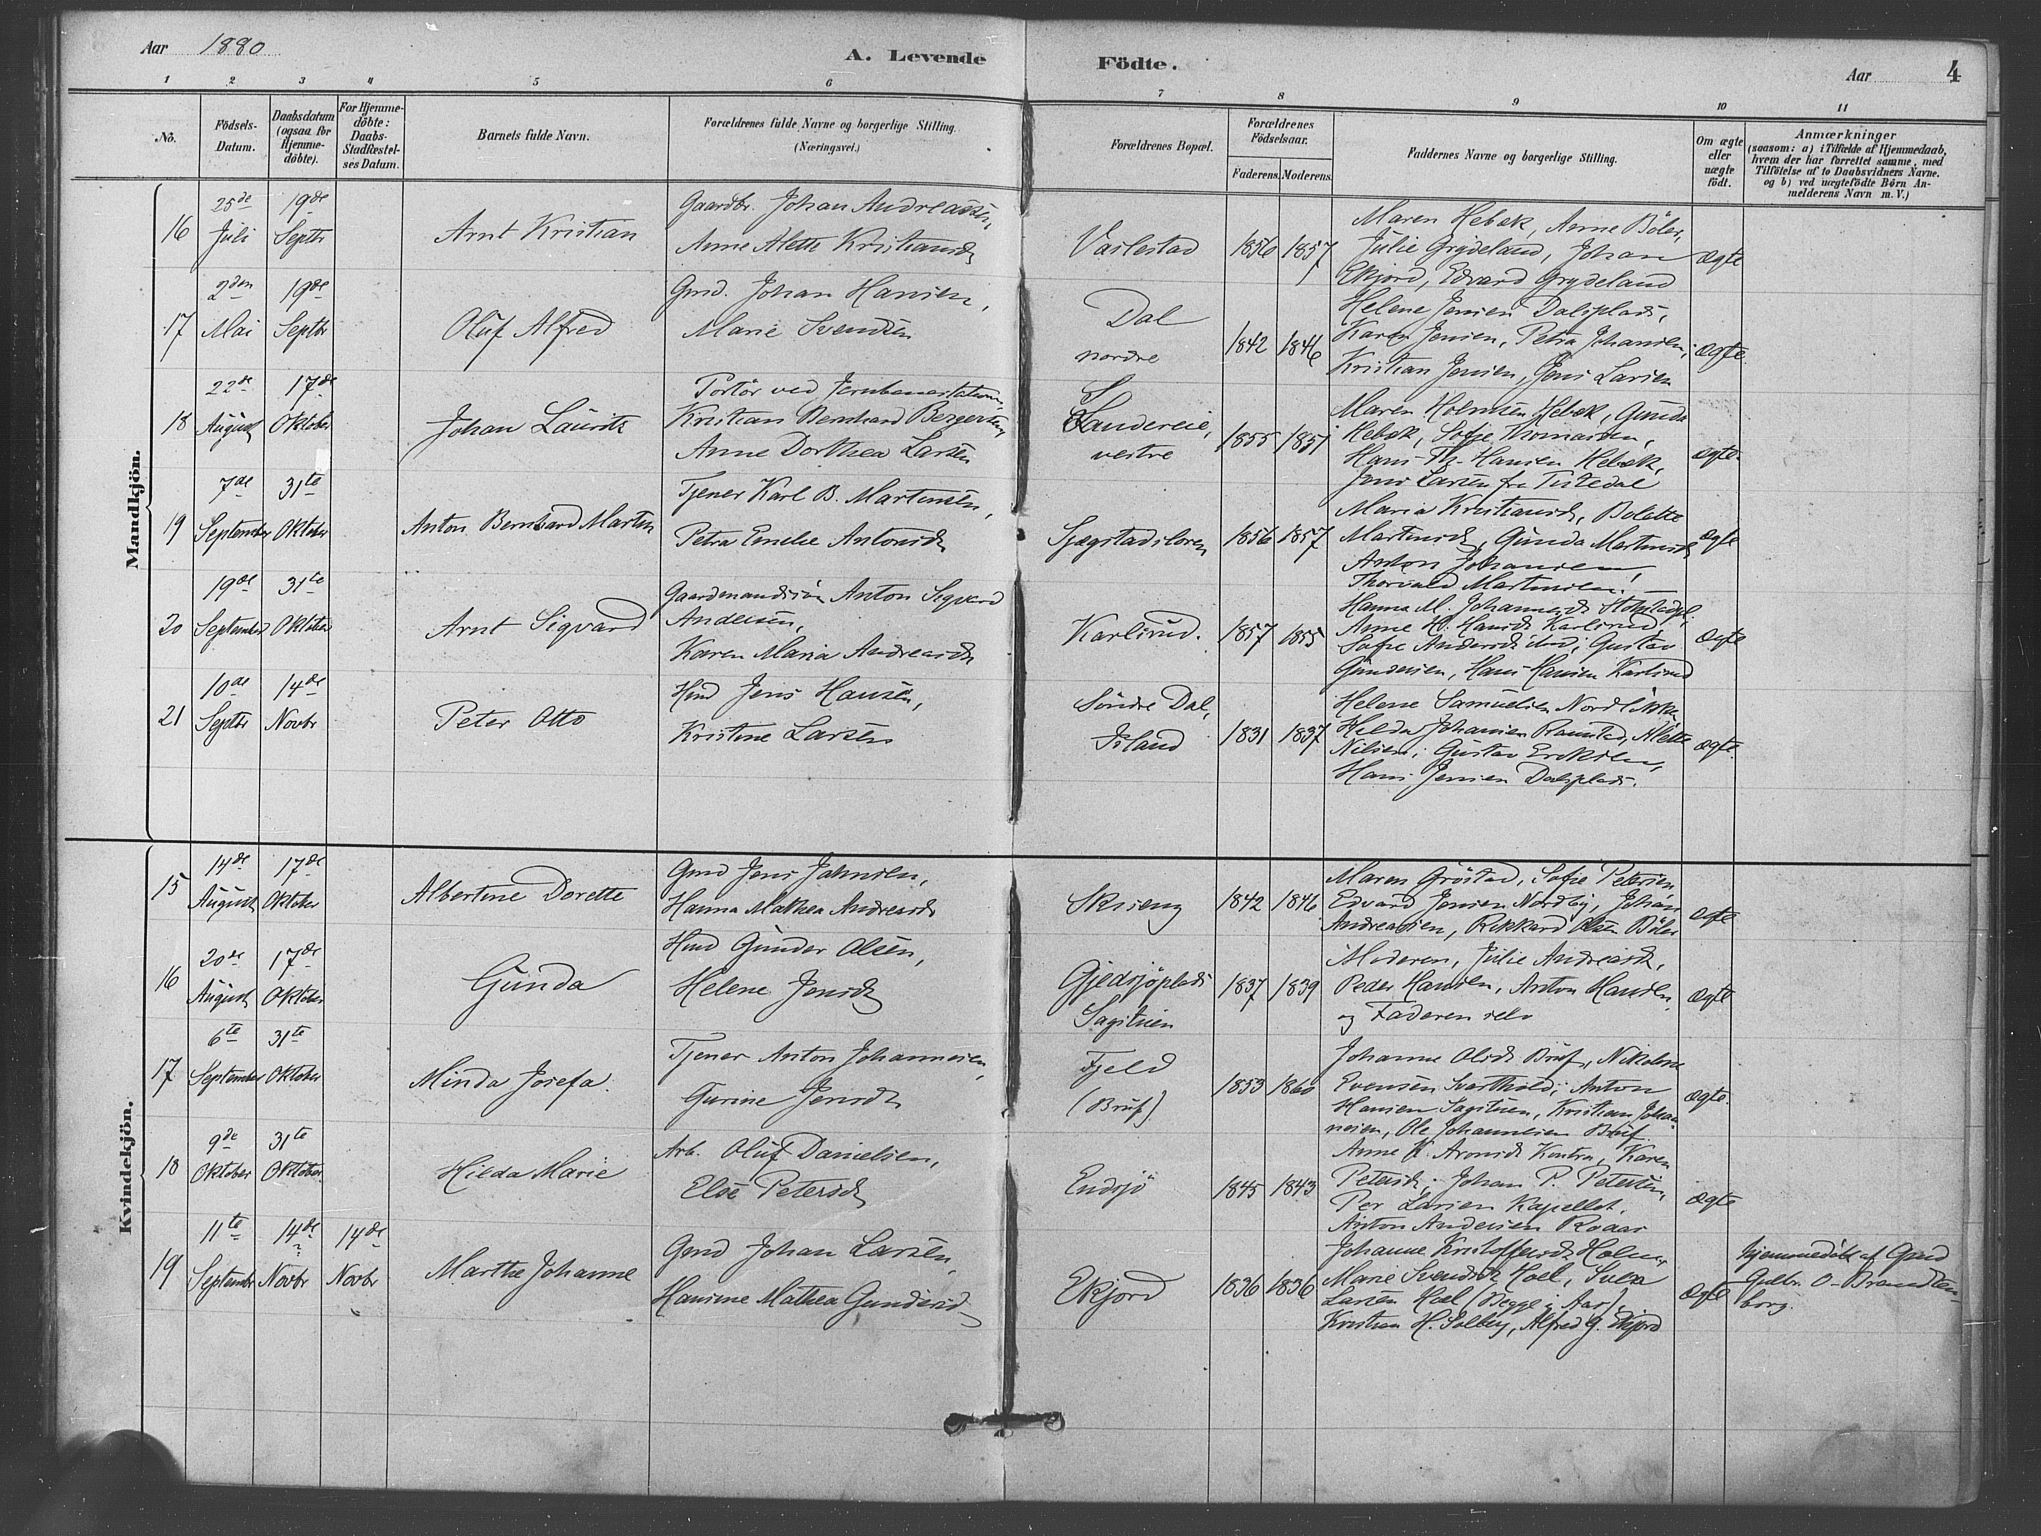 Aar 1880
A. Levende Födte.
Aar
4
1 2 3 4 5 6 7 8 9 10 11
No.
Födsels-Datum.
Daabsdatum (ogsaa for Hjemme-döbte).
For Hjemme-döbte: Daabs-Stadfæstel-ses Datum.
Barnets fulde Navn.
Forældrenes fulde Navne og borgerlige Stilling.
(Næringsvei.)
Forældrenes Bopæl.
Forældrenes Födselsaar.
Faderens. Moderens.
Faddernes Navne og borgerlige Stilling.
Om ægte eller uægte födt.
Anmærkninger
(saasom: a) i Tilfælde af Hjemmedaab,
hvem der har forrettet samme, med
Tilföielse af to Daabsvidners Navne.
og b) ved uægtefödte Börn An-
melderens Navn m. V.)
Mandkjön.
16 25de Juli 19de Septbr Arnt Kristian
Gaardbr. Johan Andreassen,
Anne Alette Kristiansd
Vaslestad 1856 1857
Maren Hebæk, Anne Böler,
Julie Grydeland, Johan
Ekjord, Edvard Grydeland
ægte
17 2den Mai 19de Septbr Oluf Alfred
Gmd. Johan Hansen,
Marie Svendsen
Dal nordre 1842 1846
Helene Jensen Dalsplads,
Karen Jensen, Petra Johansen,
Kristian Jensen, Jens Larsen
ægte.
18 22de August 17de Oktober Johan Lauritz
Portör ved Jernbanestationen
Kristian Bernhard Bergersen
Anne Dorthea Larsen
Sandereie, vestre 1855 1851
Maren Holmsen Hebæk, Gunda
Hebæk, Sofje Thomasen,
Hans Hansen Hebæk,
Jens Larsen fra Tistedal
ægte.
19 7de September 31te Oktober Anton Bernhard Martin
Tjener Karl B. Martinsen,
Petra Emelie Antonsd
1856 1857
Maria Kristiansd, Bolette
Martinsd, Gunda Martinsd,
Anton Johansen,
Thorvald Martinsen.
ægte
20 19de September 31te Oktober Arnt Sigvard
Gaardmandssön Anton Sigvard
Andersen,
Karen Maria Andreasd
Karlsrud. 1857 1855
Hanna M. Johannesd
Anne H. Hansd Karlsrud,
Sofie Andersd ibid; Gustav
Gundersen, Hans Hansen Karlsrud
ægte
21 10de Septbr 14de Novbr Peter Otto
Hmd Jens Hansen,
Kristine Larsen
Söndre Dal, Island 1831 1837
Helene Samuelsen
Helda Johansen Ramstad, Alette
Nilsen; Gustav Eriksen,
Hans Jensen Dalsplads.
ægte.
Kvindekjön.
15 14de August 17de Oktober Albertine Dorette
Gmd Jens Jahnsen,
Hanna Mathea Andreasd
Skrieng 1842 1846
Maren Gröstad, Sofie Petersen,
Edvard Jensen Nordby, Johan
Andreassen, Rikkard Olsen Böler
ægte
16 20de August 17de Oktober Gunda
Hmd Gunder Olsen,
Helene Jensd
Gjedsjöplads Sagstuen 1837 1839
Moderen, Julie Andreasd,
Peder Hansen, Anton Hansen,
og Faderen selv
ægte
17 6te September 31te Oktober Minda Josefa.
Tjener Anton Johannesen,
Gurine Jensd
Fjeld (Bruf) 1853 1860
Johanne Olsd Bruf, Nikoline
Evensen Svarthold; Anton
Hansen Sagstuen, Kristian Johan-
nesen, Ole Johannesen Bruf
ægte.
18 9de Oktober 31te Oktober Hilda Marie
Arb. Oluf Danielsen,
Else Petersd
Endsjö 1845 1843
Anne K. Aronsd Kontra, Karen
Petersd; Johan P. Petersen,
Per Larsen Kapellet,
Anton Andersen Roaas
ægte
19 11te September 14de Novbr 14de Novbr Marthe Johanne
Gmd Johan Larsen,
Hansine Mathea Gundersd
Ekjord 1836 1836
Johanne Kristoffersd Holm,
Marie Svendsd Hoel, Sven
Larsen Hoel (Begge i Aas),
Kristian H. Solberg, Alfred G. Ekjord
ægte
hjemmedöbt af Gmd
Gulbr. O. Branden-
borg.